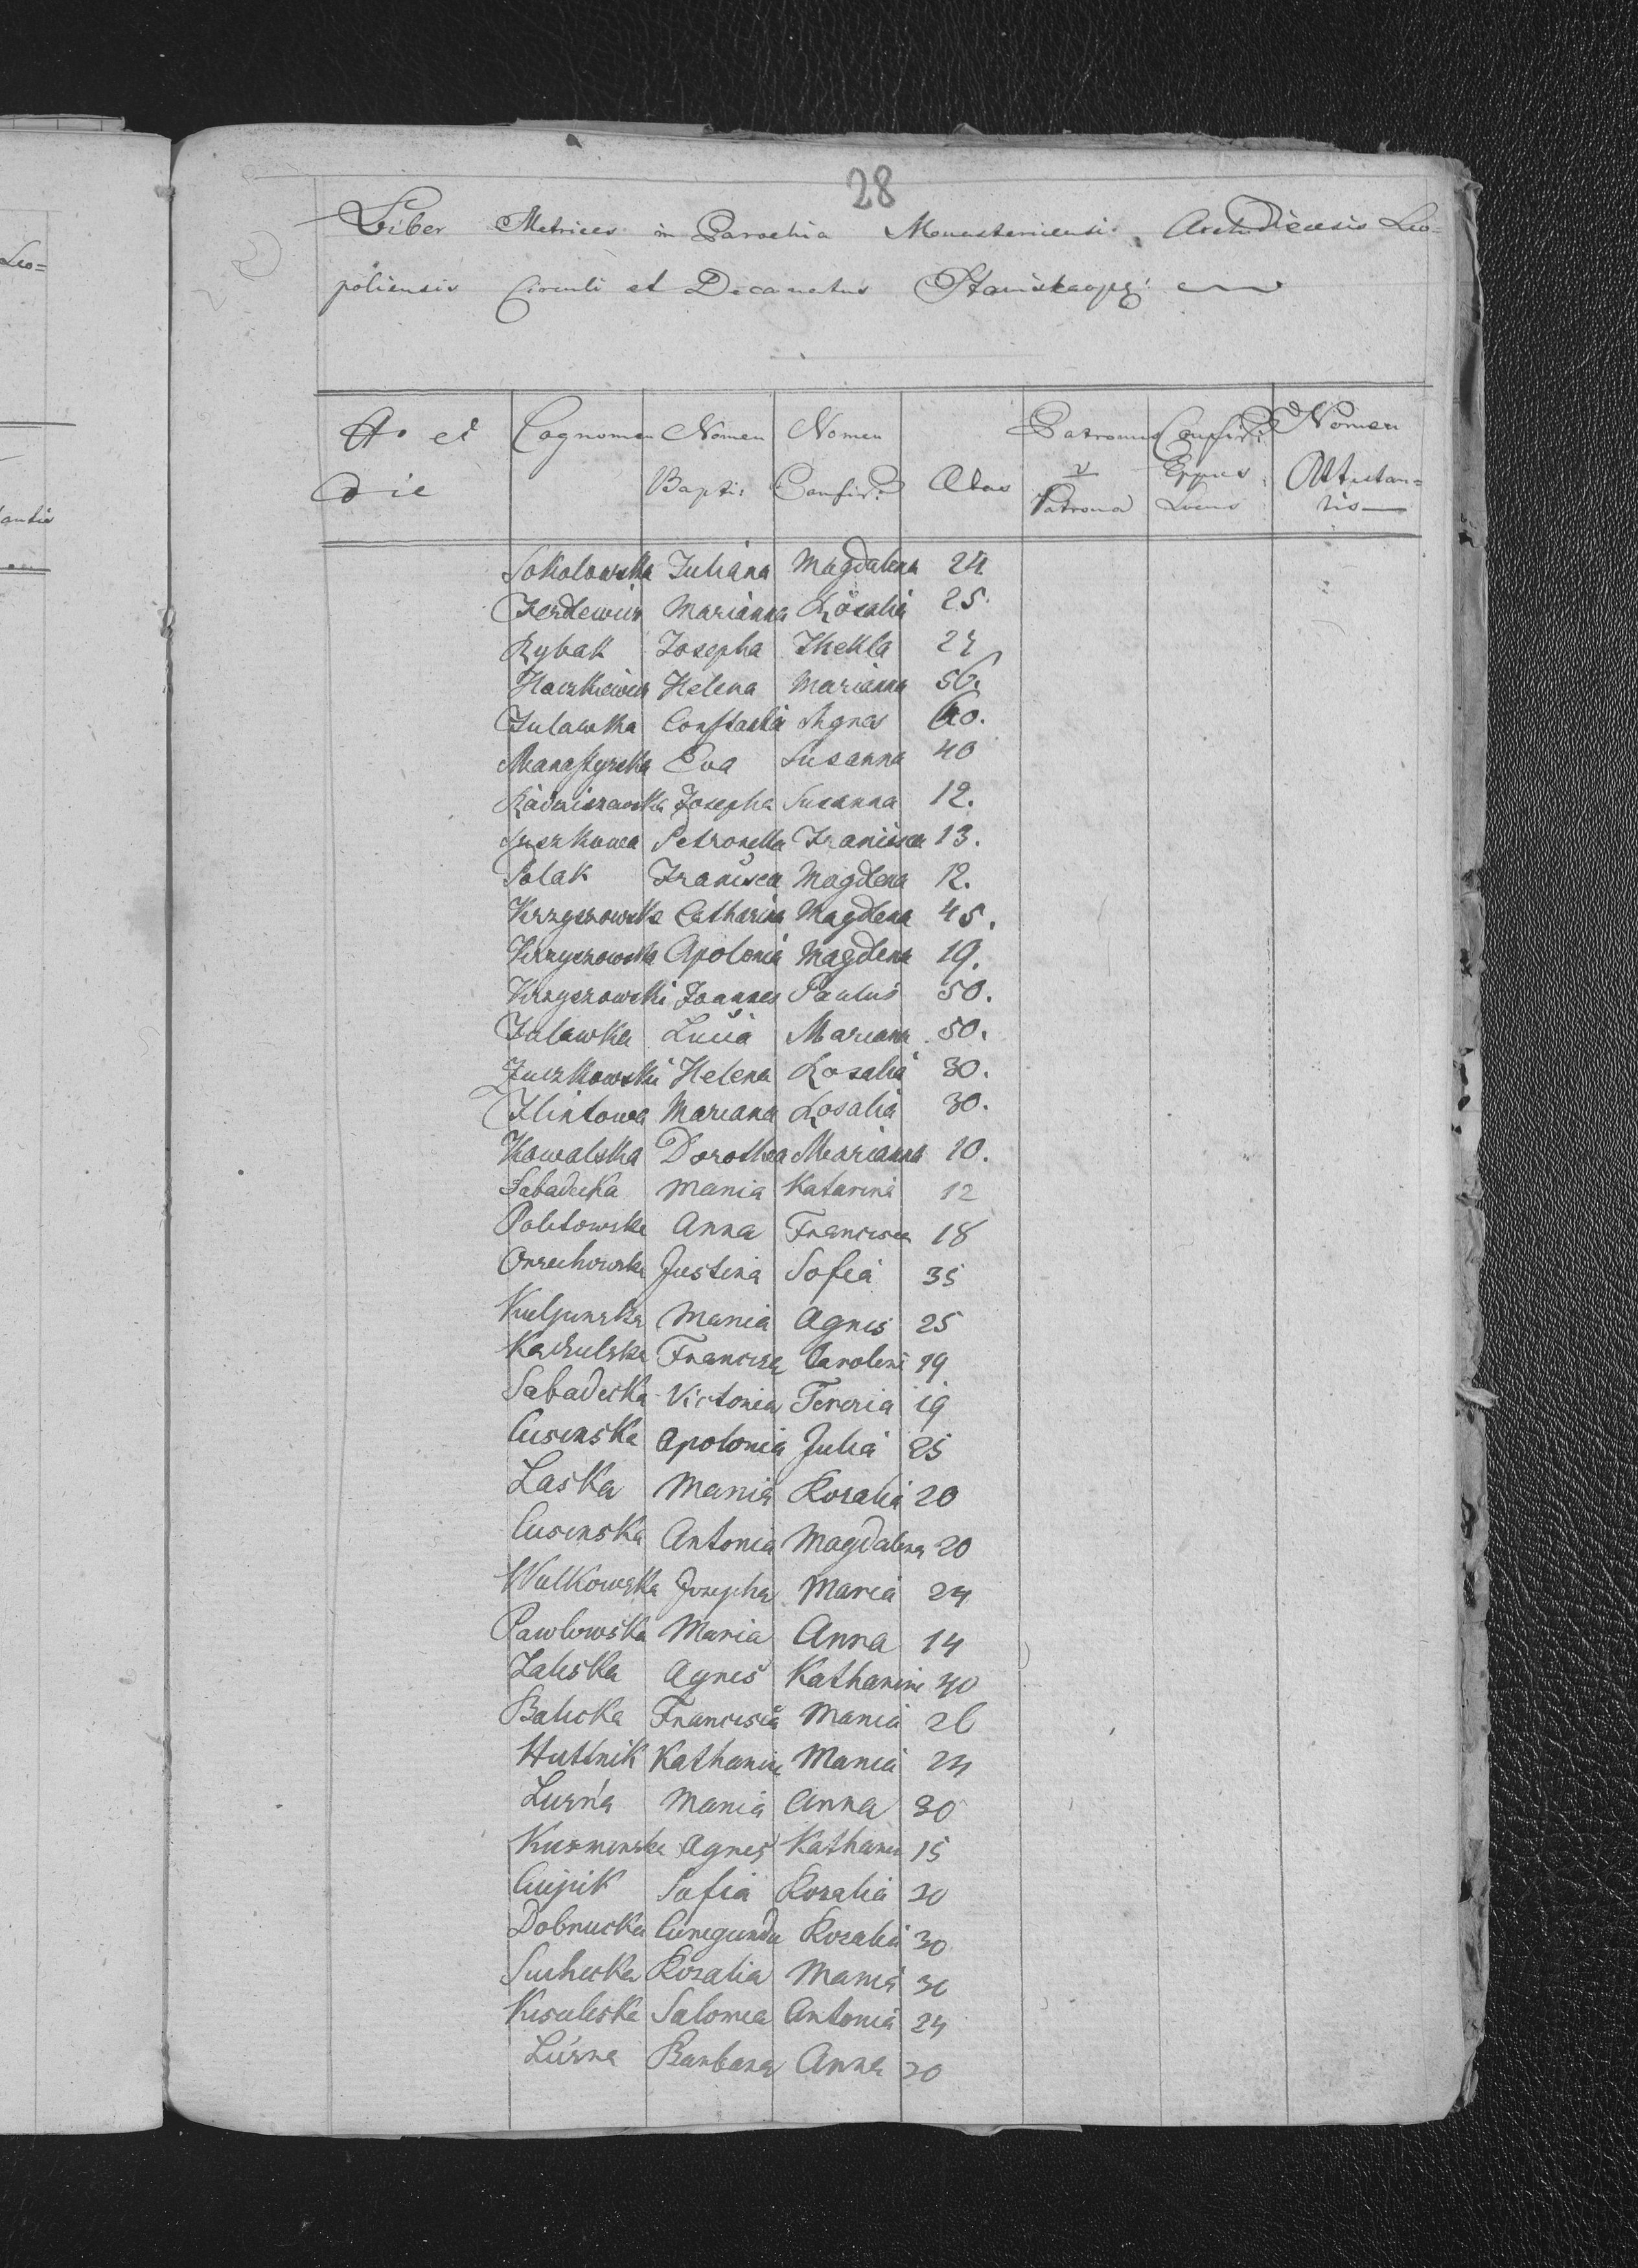 28
Liber Metrices in Parochia Monasteriensi Archidiecesis Leo=
poliensis Circuli et Decanatus
Ao et Cognomen Nomen Nomen Patronus Confir: Nomen
die Bapti: Confir: Aetas v Eppus Attestan=
Patrona Locus tis
Leo=
antis
Sokolowska Juliana Magdalena 24
Marianna Rosalia 25.
Rybak Josepha Thekla
Haczkiewicz Helena Marianna 56.
Zulawka Constantia Agnes 60.
Manastyrska Eva Susanna 40
Radziszewska Josepha Susanna 12.
Petronella Francisca 13.
Polak Francisca Magdlena 12.
Krzyszowska Catharina Magdlena 45.
Krzyszowska Apolonia Magdlena 19.
Krzyszowski Joannes Paulus 50.
Zulawka Lucia Mariana 50.
Zuczkowski Helena Rosalia 30.
Flintowa Mariana Rosalia 30.
Kowalska Dorothea Marianna 10.
Sabadecka Maria Katarina 12
Politowska Anna Francisca 18
Orzechowska Justina Sofia 35
Maria Agnes 25
Francisca Carolina 19
Sabadecka Victoria Teresia 19
Cusinska Apolonia Julia 25
Laska Maria Rosalia 20
Cusinska Antonia Magdalena 20
Wulkowska Josepha Maria 24
Pawlowska Maria Anna 14
Zaleska Agnes Katharine 40
Balicka Francisca Maria 26
Huttnik Katharine Maria 24
Luzna Maria Anna 30
Kuzminska Agnes Katharin 15
Sofia Rozalia 20
Dobrucka Cunegunda Rozalia 30
Suchecka Rozalia Maria 30
Salomea Antonia 24
Luzna Barbara Anna 20